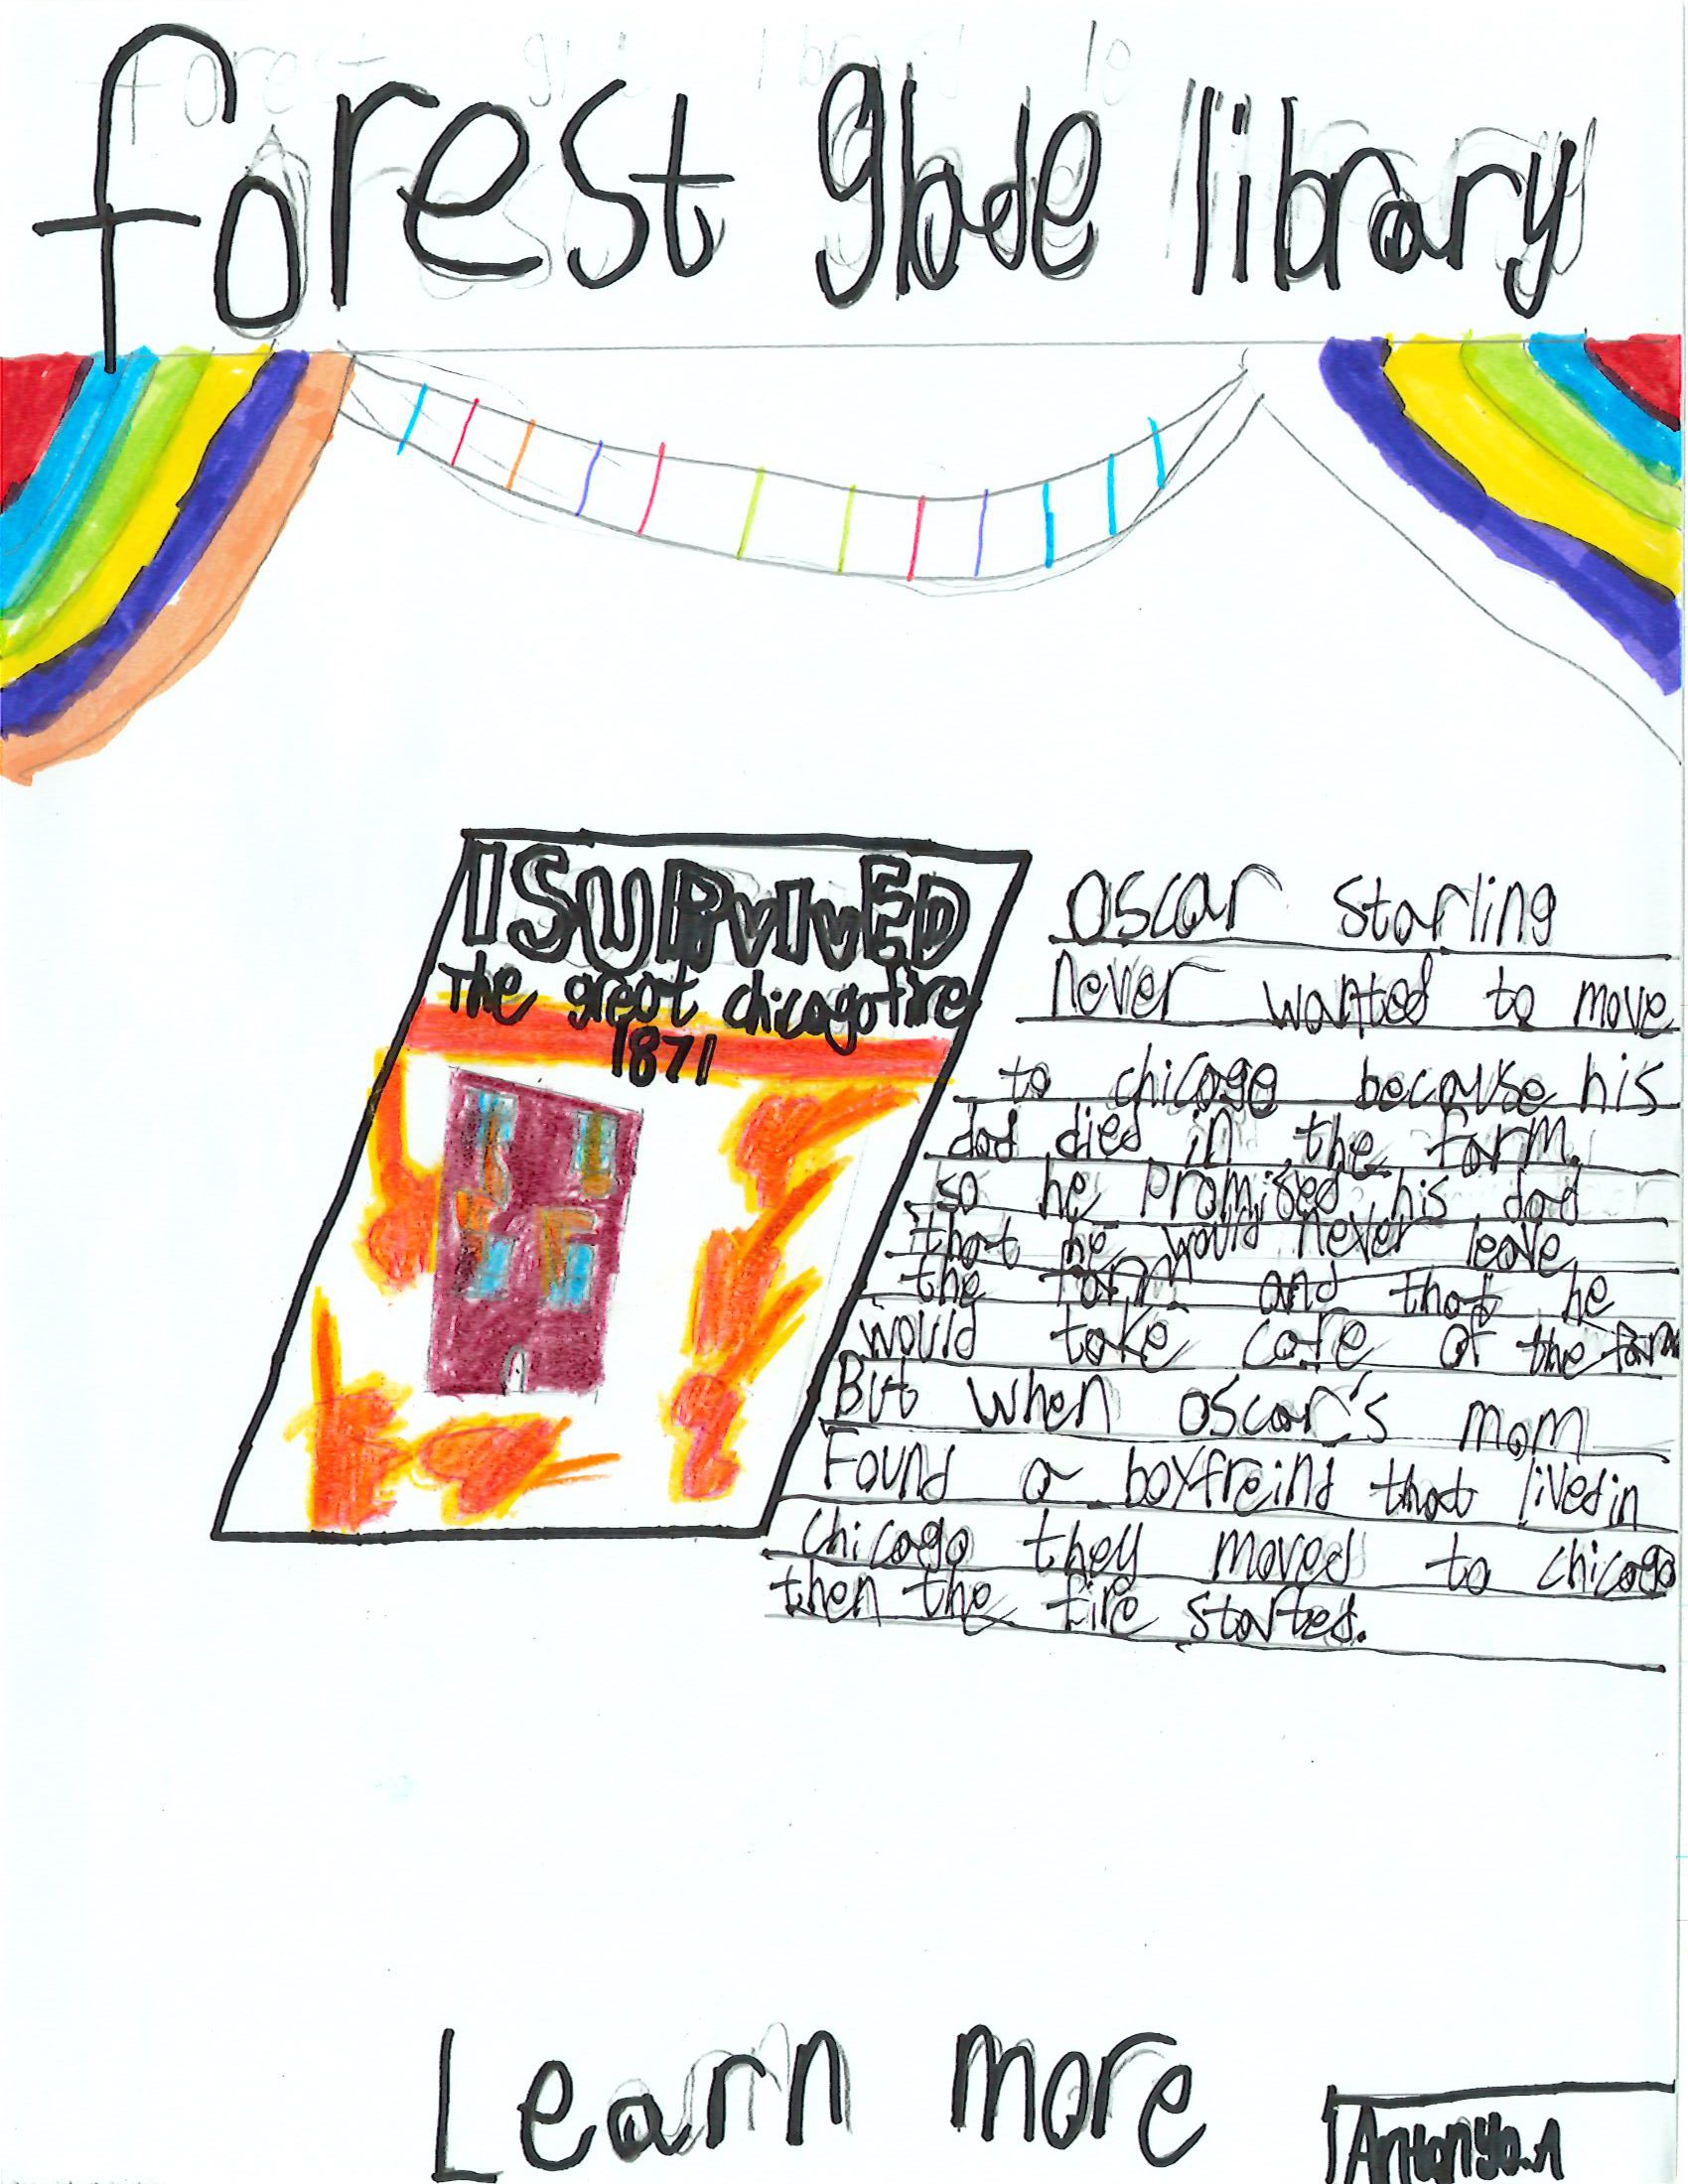 forest glade library
I SURVIVED
The great chicago fire
1871
Oscar starling
never wanted to move
to chicago because his
dad died in the farm.
so he promised his dad
that he would never leave
the farm and that he
would take care of the farm
But when oscar's mom
Found a boyfreind that lived in
chicago they moved to chicago
then the fire started.
Learn more
Antonyo.A